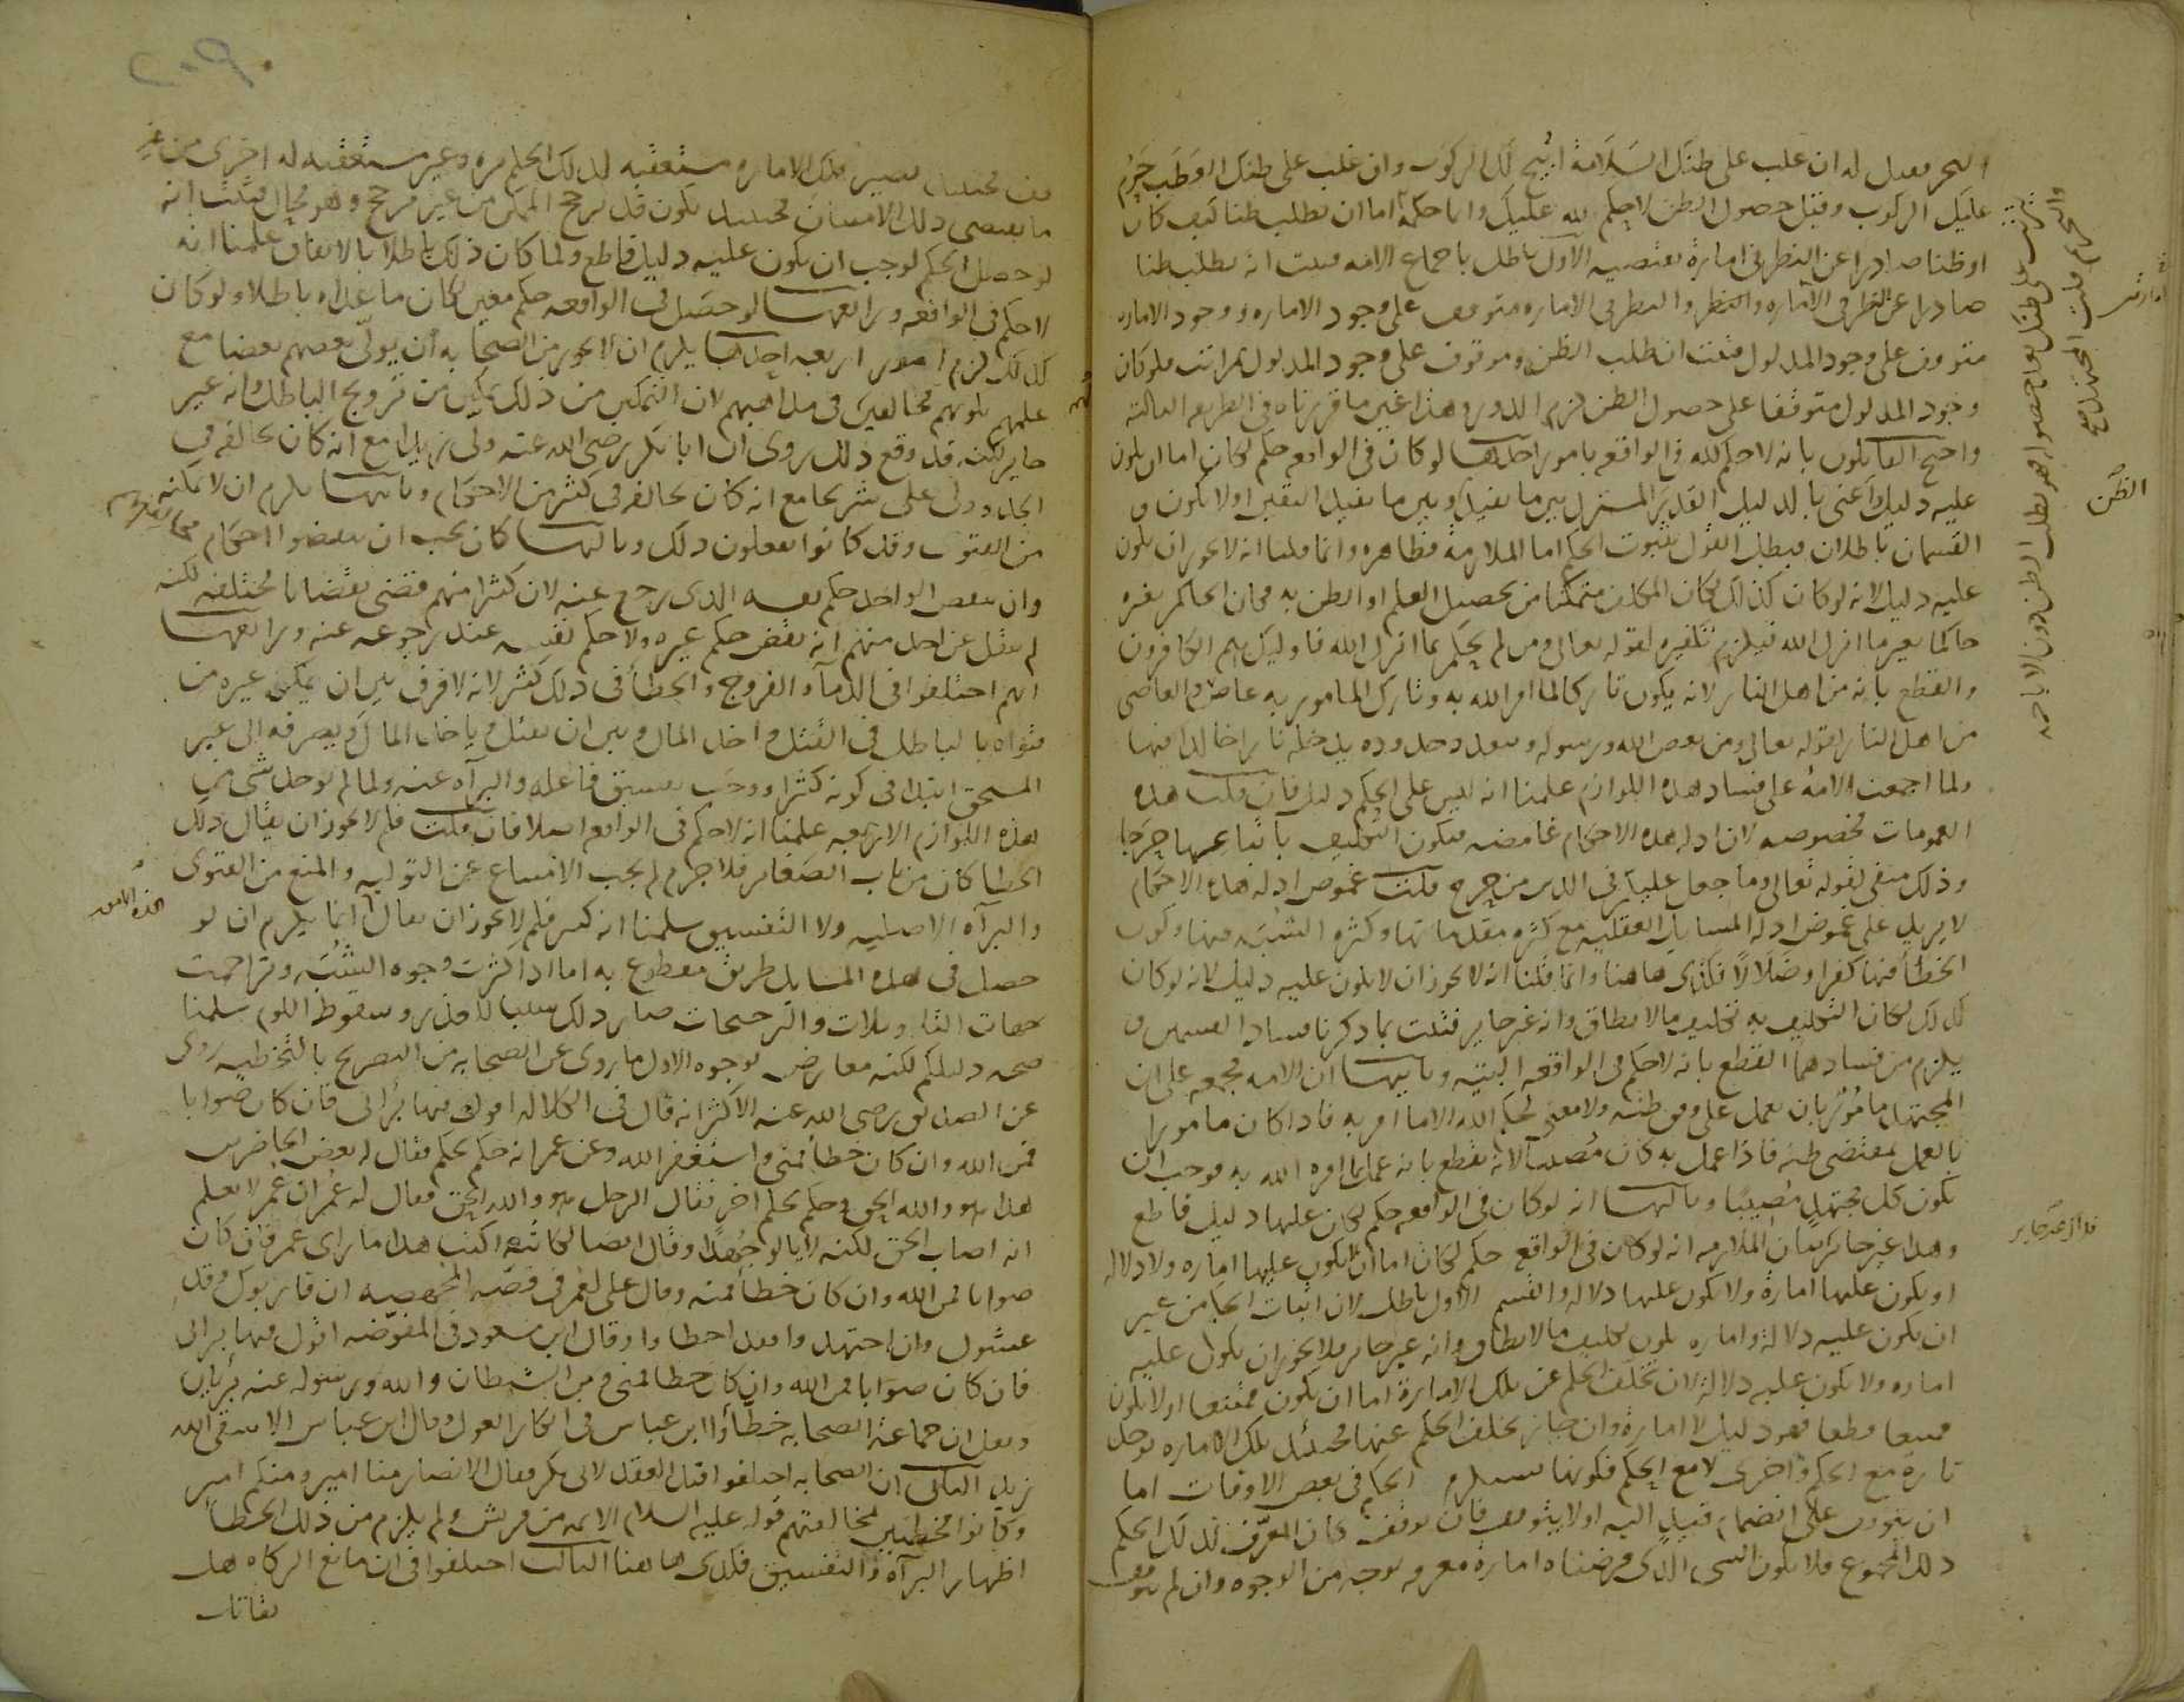 البحر فعدل له ان غلب على ظنك السلامة ابيح لك الركوب وان غلب على ظنك العطب حرم
عليك الركوب وقبل حصول الظن لا حكم لله عليك وانما حكمه اما ان يطلب ظنا كيف كان
او ظنا صادرا عن النظر في امارة يقتضيه الاول باطل باجماع الامة فثبت انه يطلب ظنا
صادرا عن النظر في الامارة والنظر في الامارة متوقف على وجود الامارة ووجود الامارة
متوقف على وجود المدلول فثبت ان طلب الظن موقوف على وجود المدلول بمراتب فلو كان
وجود المدلول متوقفا على حصول الظن لزم الدور وهذا غير ما قررناه في الطريقة الثالثة
واحتج القايلون بانه لا حكم لله في الواقعة بامور احدها لو كان في الواقعة حكم لكان اما ان يكون
عليه دليل واعني بالدليل القدر المشترك بين ما يفيد وبين ما يفيد اليقين او لا يكون و
القسمان باطلان فبطل القول بثبوت الحكم اما الملازمة فظاهرة وانما قلنا انه لا يجوز ان يكون
عليه دليل لانه لو كان كذلك لكان المكلف متمكنا من تحصيل العلم او الظن به فكان الحاكم بغيره
حاكما بغير ما انزل الله فيلزم تكفيره لقوله تعالى ومن لم يحكم بما انزل الله فاوليك هم الكافرون
والقطع بانه من اهل النار لانه يكون تاركا لما امر الله به وتارك المامور به عاص والعاصي
من اهل النار لقوله تعالى ومن يعص الله ورسوله ويتعد حدوده يدخله نارا خالدا فيها
ولما اجمعت الامة على فساد هذه اللوازم علمنا انه ليس على الحكم دليل فان قلت هذه
العمومات مخصوصة لان ادلة هذه الاحكام غامضة فيكون التكليف باتباعها حرجا
وذلك منفي لقوله تعالى وما جعل عليكم في الدين من حرج قلت غموض ادلة هذه الاحكام
لا يزيد على غموض ادلة المسايل العقلية مع كثرة مقدماتها وكثرة الشبه فيها وكون
الخطا فيها كفرا وضلالا فكذى هاهنا وانما قلنا انه لا يجوز ان لا يكون عليه دليل لانه لو كان
كذلك لكان التكليف به تكليف ما لا يطاق وانه غير جايز فثبت بما ذكرنا فساد القسمين و
يلزم من فسادهما القطع بانه لا حكم في الواقعة البتة وثانيها ان الامة مجمعة على ان
المجتهد مامور بان يعمل على وفق ظنه ولا معنى لحكم الله الا ما امر به فاذا كان مامورا
بالعمل بمقتضى ظنه فاذا عمل به كان مصيبا لانه يقطع بانه عمل بما امره الله به فوجب ان
يكون كل مجتهد مصيبا وثالثها انه لو كان في الواقعة حكم لكان عليها دليل قاطع
وهذا غير جايز بيان الملازمة انه لو كان في الواقع حكم لكان اما ان لا يكون عليها امارة ولا دلالة
او يكون عليها امارة ولا يكون عليها دلالة والقسم الاول باطل لان اثبات الحكم من غير
ان يكون عليه دلالة وامارة يكون تكليف ما لا يطاق وانه غير جايز فلا يجوز ان يكون عليه
امارة ولا يكون عليه دلالة لان تخلف الحكم عن تلك الامارة اما ان يكون ممتنعا او لا يكون
ممتنعا قطعا فهو دليل لا امارة وان جاز تخلف الحكم عنها فحينئذ تلك الامارة توجد
تارة مع الحكم واخرى لا مع الحكم فكونها مستلزم الحكم في بعض الاوقات اما
ان يتوقف على انضمام قيد اليه او لا يتوقف فان توقف كان المعرف لذلك الحكم
ذلك المجموع فلا يكون الشي الذي فرضناه امارة معرفه بوجه من الوجوه وان لم يتوقف
الظن
فذاك غير جايز
فحينئذ تصير تلك الامارة مستعقبة لذلك الحكم مرة وغير مستعقبة له اخرى من غير
ما يقتضي ذلك الامتياز فحينئذ يكون قد ترجح الممكن من غير مرجح وهو محال فثبت انه
لو حصل الحكم لوجب ان يكون عليه دليل قاطع ولما كان ذلك باطلا بالاتفاق علمنا انه
لا حكم في الواقعة ورابعها لو حصل في الواقعة حكم معين لكان ما عداه باطلا ولو كان
كذلك لزم امور اربعة احدها يلزم ان لا يجوز من الصحابة ان يولي بعضهم بعضا مع
علمهم بكونهم مخالفين في مذاهبهم لان التمكين من ذلك تمكين من ترويج الباطل وانه غير
جايز لكنه قد وقع ذلك روى ان ابا بكر رضي الله عنه ولى زيدا مع انه كان يخالفه في
الجد وولى علي شريحا مع انه كان يخالفه في كثير من الاحكام وثانيها يلزم ان لا يمكنه
من الفتوى وقد كانوا يفعلون ذلك وثالثها كان يجب ان ينقضوا احكام مخالفيهم
وان ينقض الواحد حكم نفسه الذي رجع عنه لان كثيرا منهم قضى بقضايا مختلفة لكنه
لم ينقل عن احد منهم انه نقض حكم غيره ولا حكم نفسه عند رجوعه عنه ورابعها
انهم اختلفوا في الدماء والفروج والخطأ في ذلك كثير لانه لا فرق بين ان يمكن غيره من
فتواه بالباطل في القتل واخذ المال وبين ان يقتل وياخذ المال ويصرفه الى غير
المستحق ابتدا في كونه كثيرا ووجب تفسيق فاعله والبراءة عنه ولما لم يوجد شي من
هذه اللوازم الاربعة علمنا انه لا حكم في الواقع اصلا فان قلت فلم لا يجوز ان يقال ذلك
الخطا كان من باب الصغاير فلا جرم لم يجب الامتناع عن التولية والمنع من الفتوى
والبراة الاصلية ولا التفسيق سلمنا انه كبير فلم لا يجوز ان يقال انما يلزم ان لو
حصل في هذه المسايل طريق مقطوع به اما اذا كثرت وجوه الشبه وتزاحمت
جهات التاويلات والترجيحات صار ذلك سببا للعذر وسقوط اللوم سلمنا
صحة دليلكم لكنه معارض بوجوه الاول ما روى عن الصحابة من التصريح بالتخطية روى
عن الصديق رضي الله عنه الاكثر انه قال في الكلالة اقول فيها برايي فان كان صوابا
فمن الله وان كان خطأ فمني واستغفر الله وعن عمر انه حكم بحكم فقال له بعض الحاضرين
هذا هو والله الحق وحكم بحكم اخر فقال الرجل هو والله الحق فقال له عمر ان عمر لا يعلم
انه اصاب الحق لكنه لا يالو جهدا وقال ايضا لكاتبه اكتب هذا ما راى عمر فان كان
صوابا فمن الله وان كان خطأ فمنه وقال علي لعمر في قصة المجهضة ان قاربوك وقد
غشوك وان اجتهدوا فقد اخطاوا وقال ابن مسعود في المفوضة اقول فيها برايي
فان كان صوابا فمن الله وان كان خطا فمني ومن الشيطان والله ورسوله عنه بريان
ونقل ان جماعة الصحابة خطأوا ابن عباس في انكار العول وقال ابن عباس الا يتقي الله
زيد الثاني ان الصحابة اختلفوا قبل العقد لابي بكر فقال الانصار منا امير ومنكم امير
وكانوا مخطيين لمخالفتهم قوله عليه السلام الايمة من قريش ولم يلزم من ذلك الخطا
اظهار البراة والتفسيق فكذى هاهنا الثالث اختلفوا في ان مانع الزكاة هل
يقاتل